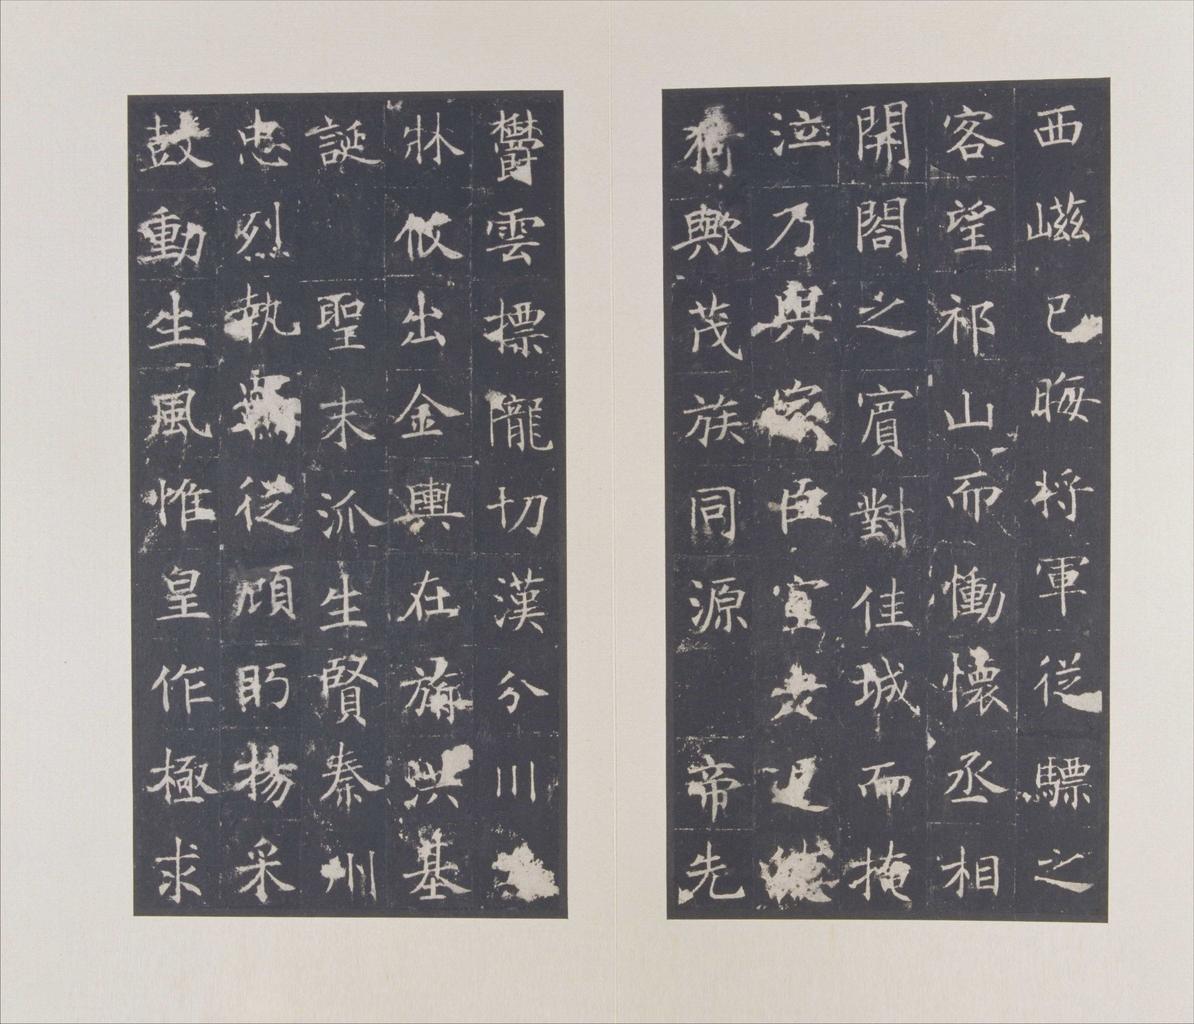 西嵫已晦将軍従驃之
客望祁山而慟懷丞相
開閤之賓對佳城而掩
泣乃與家臣宣
猗歟茂族同源帝先
鬱雲標隴切漢分川
牀攸出金輿在旃洪基
誕聖末派生賢秦州
忠烈執従頋眄揚采
鼓動生風惟皇作極求